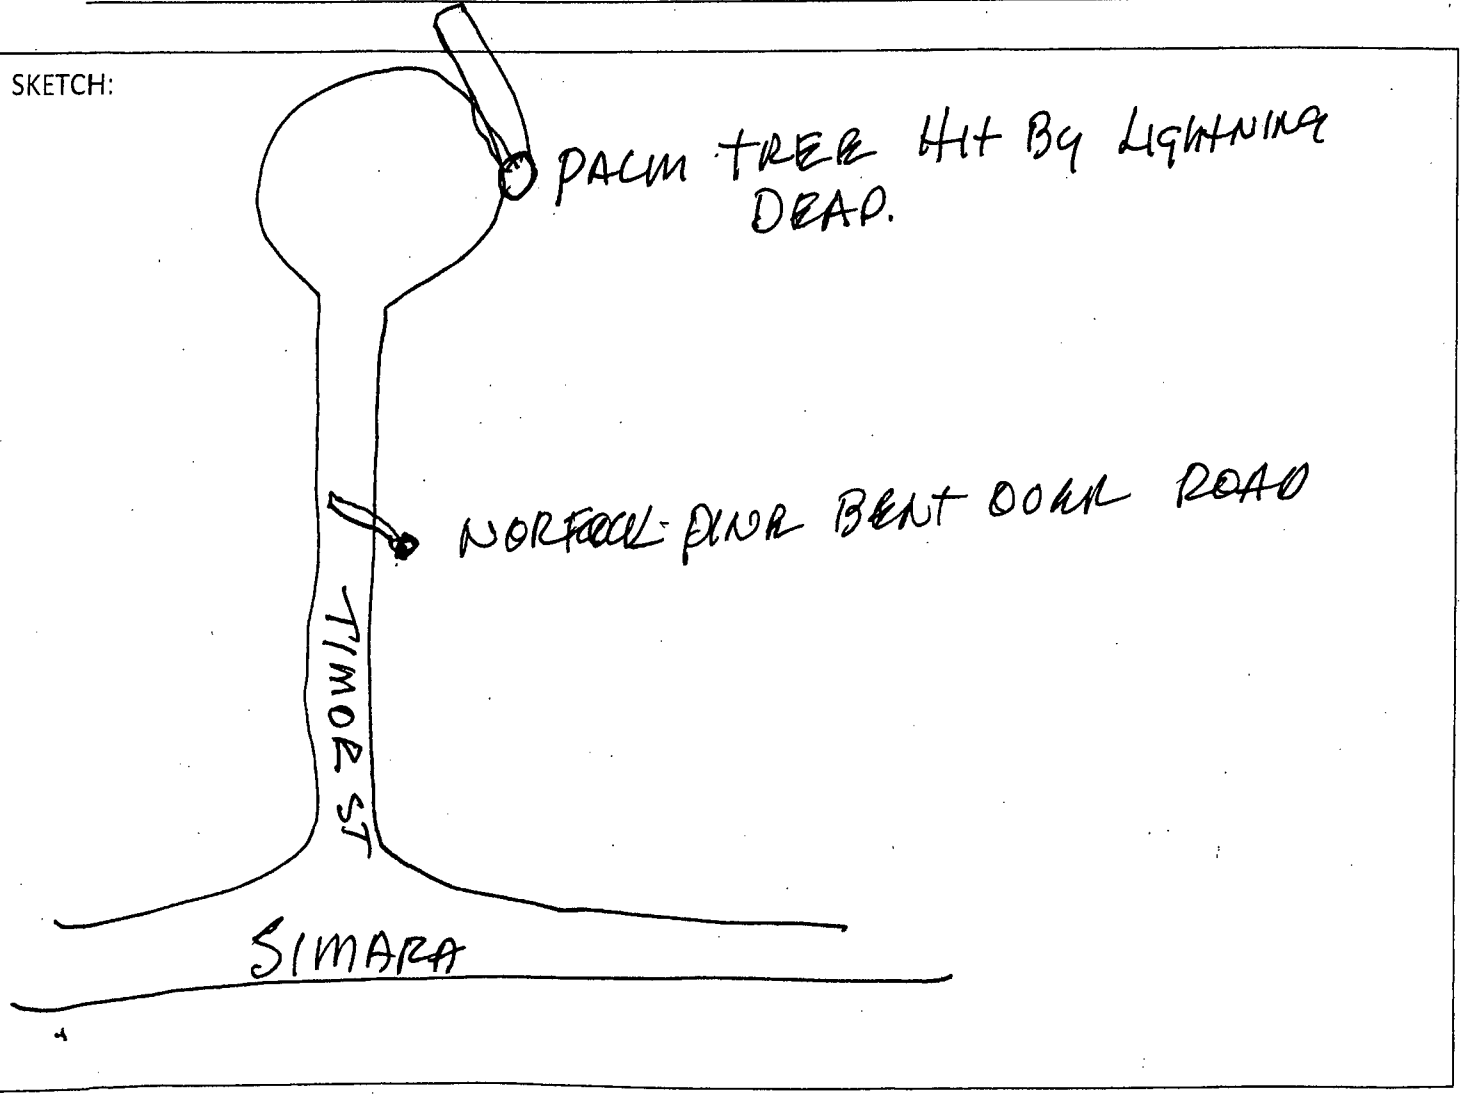 SKETCH:
PALM TREE HIT By LIGHTNING
DEAD.
NORFOLK-PINE BENT OVER ROAD
TIMOR ST
SIMARA